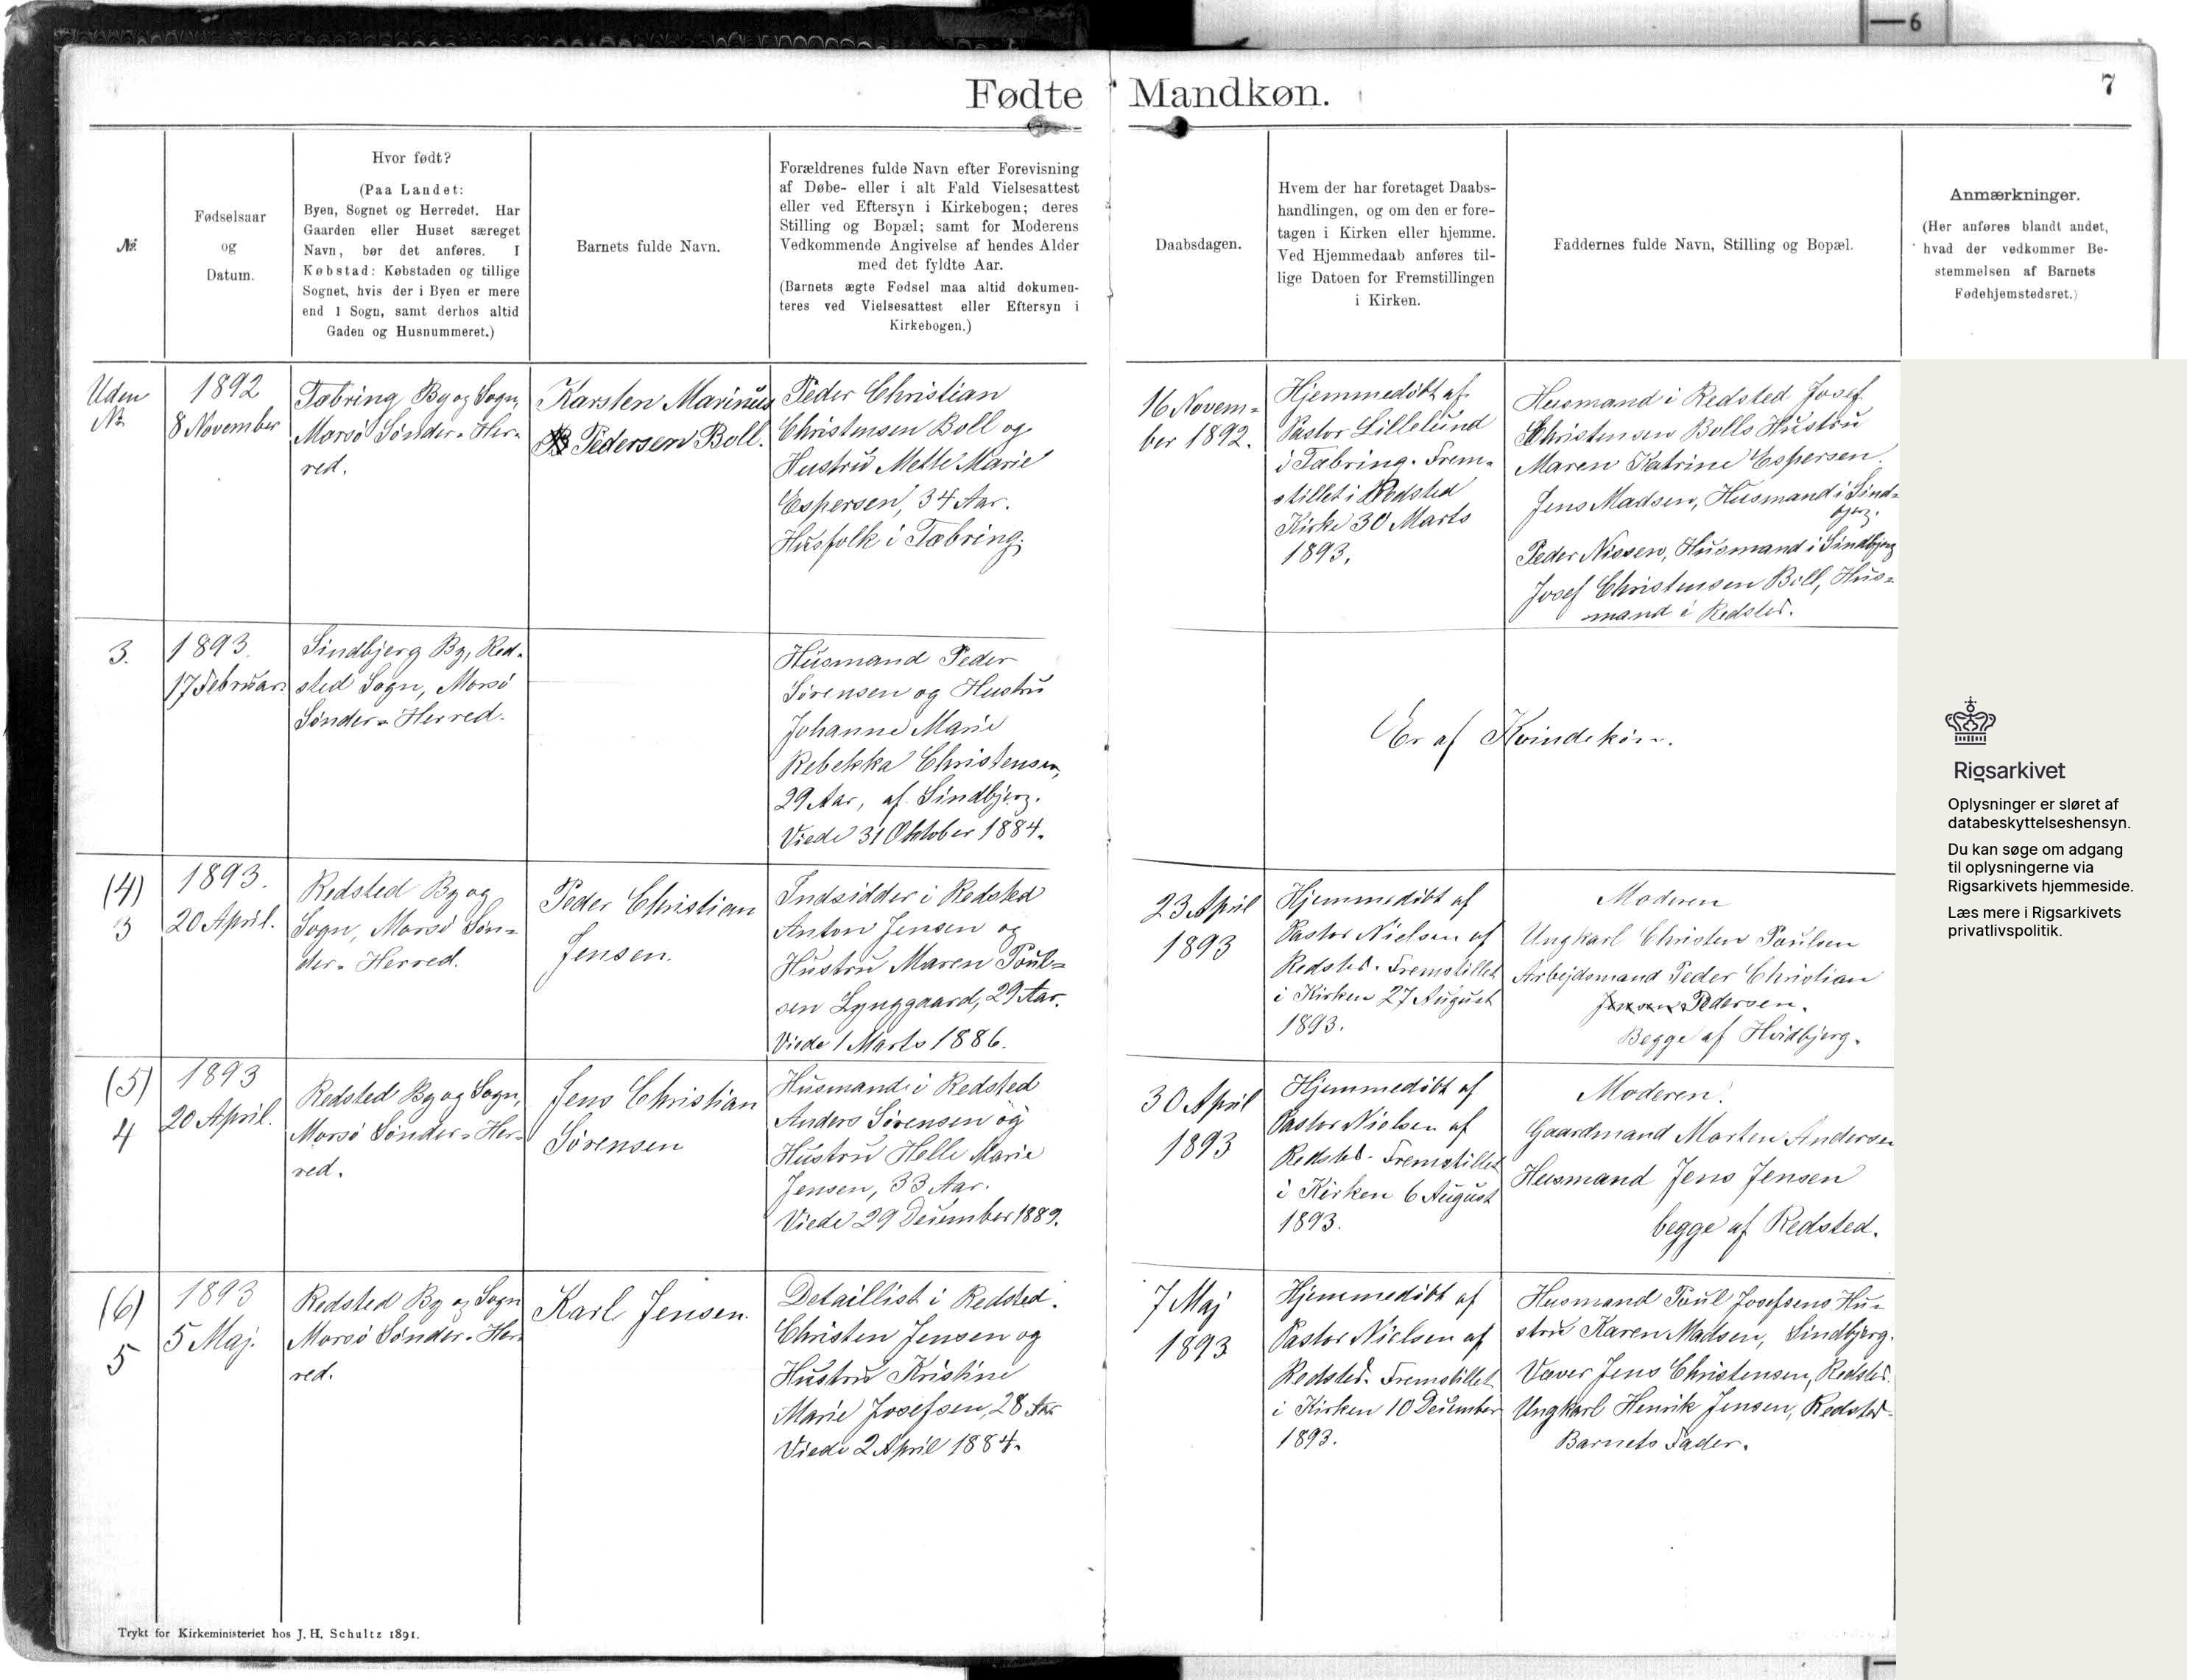 6
Fødte Mandkøn.
7
№
Fødselsaar
og
Datum.
Hvor født?
(Paa Landet:
Byen, Sognet og Herredet. Har
Gaarden eller Huset særeget
Navn, bør det anføres. I
Købstad: Købstaden og tillige
Sognet, hvis der i Byen er mere
end 1 Sogn, samt derhos altid
Gaden og Husnummeret.)
Barnets fulde Navn.
Forældrenes fulde Navn efter Forevisning
af Døbe- eller i alt Fald Vielsesattest
eller ved Eftersyn i Kirkebogen; deres
Stilling og Bopæl; samt for Moderens
Vedkommende Angivelse af hendes Alder
med det fyldte Aar.
(Barnets ægte Fødsel maa altid dokumen-
teres ved Vielsesattest eller Eftersyn i
Kirkebogen.)
Daabsdagen.
Hvem der har foretaget Daabs-
handlingen, og om den er fore-
tagen i Kirken eller hjemme.
Ved Hjemmedaab anføres til-
lige Datoen for Fremstillingen
i Kirken.
Faddernes fulde Navn, Stilling og Bopæl.
Anmærkninger.
(Her anføres blandt andet,
hvad der vedkommer Be-
stemmelsen af Barnets
Fødehjemstedsret.)
Uden
№
1892
8 November
Tæbring By og Sogn,
Morsø Sønder-Her-
red.
Karsten Marinus
Pedersen Boll.
Peder Christian
Christensen Boll og
Hustru Mette Marie
Espersen, 34 Aar.
Husfolk i Tæbring.
16 Novem-
ber 1892.
Hjemmedøbt af
Pastor Lillelund
i Tæbring. Frem-
stillet i Redsted
Kirke 30 Marts
1893.
Husmand i Redsted Josef
Christensen Bolls Hustru
Maren Katrine Espersen.
Jens Madsen, Husmand i Sind-
bjerg.
Peder Nissen, Husmand i Sindbjerg
Josef Christensen Boll, Hus-
mand i Redsted.
3.
1893.
17 Februar.
Sindbjerg By, Red-
sted Sogn, Morsø
Sønder-Herred.
Husmand Peder
Sørensen og Hustru
Johanne Marie
Rebekka Christensen,
29 Aar, af Sindbjerg.
Viede 31 Oktober 1884.
Er af Kvindekøn.
(4)
3
1893.
20 April.
Redsted By og
Sogn, Morsø Søn-
der-Herred.
Peder Christian
Jensen.
Indsidder i Redsted
Anton Jensen og
Hustru Maren Poul-
sen Lynggaard, 29 Aar.
Viede 1 Marts 1886.
23 April
1893
Hjemmedøbt af
Pastor Nielsen af
Redsted. Fremstillet
i Kirken 27 August
1893.
Moderen
Ungkarl Christen Poulsen
Arbejdsmand Peder Christian
Jensen Pedersen.
Begge af Hvidbjerg.
(5)
4
1893
20 April.
Redsted By og Sogn,
Morsø Sønder-Her-
red.
Jens Christian
Sørensen
Husmand i Redsted
Anders Sørensen og
Hustru Helle Marie
Jensen, 33 Aar.
Viede 29 December 1889.
30 April
1893
Hjemmedøbt af
Pastor Nielsen af
Redsted. Fremstillet
i Kirken 6 August
1893.
Moderen.
Gaardmand Morten Andersen
Husmand Jens Jensen
begge af Redsted.
(6)
5
1893
5 Maj.
Redsted By og Sogn
Morsø Sønder-Her-
red.
Karl Jensen.
Detaillist i Redsted.
Christen Jensen og
Hustru Kristine
Marie Josefsen, 28 Aar
Viede 2 April 1884.
7 Maj
1893
Hjemmedøbt af
Pastor Nielsen af
Redsted. Fremstillet
i Kirken 10 December
1893.
Husmand Poul Josefsens Hu-
stru Karen Madsen, Sindbjerg.
Væver Jens Christensen, Redsted.
Ungkarl Henrik Jensen, Redsted
Barnets Fader.
Trykt for Kirkeministeriet hos J. H. Schultz 1891.
Rigsarkivet
Oplysninger er sløret af
databeskyttelseshensyn.
Du kan søge om adgang
til oplysningerne via
Rigsarkivets hjemmeside.
Læs mere i Rigsarkivets
privatlivspolitik.